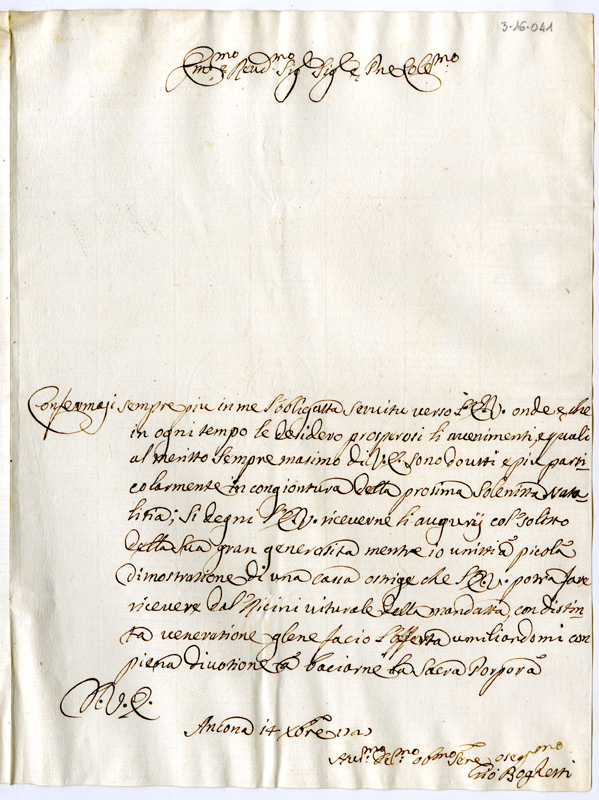 3-16-041
Em̃o e Reud.mo Sig.r Sig.r e Pne Col.mo
Confermasi sempre piu in me l'obligatta seruitu verso l'E.V. onde è che
in ogni tempo le desidero prosperosi li auenimenti, e quali
al meritto sempre masimo di V.E. sono douuti e piu parti-
colarmente in congiontura della prosima Solenitta Nata-
litia; Si degni l'E.V. riceuerne li augurij col solitto
della sua gran generosita mentre io unitti à picola
dimostratione di una cassa ostrige che l'E.V. potra fare
riceuere dal Picini viturale della mandatta, con distin-
ta veneratione gliene facio l'offerta umiliandomi con
piena diuotione à baciarne la Sacra Porpora
D. V. E.
Ancona 14 Xbre
Aus.mo Del.mo ob.mo Sere oseq.mo
Gio Boghetti